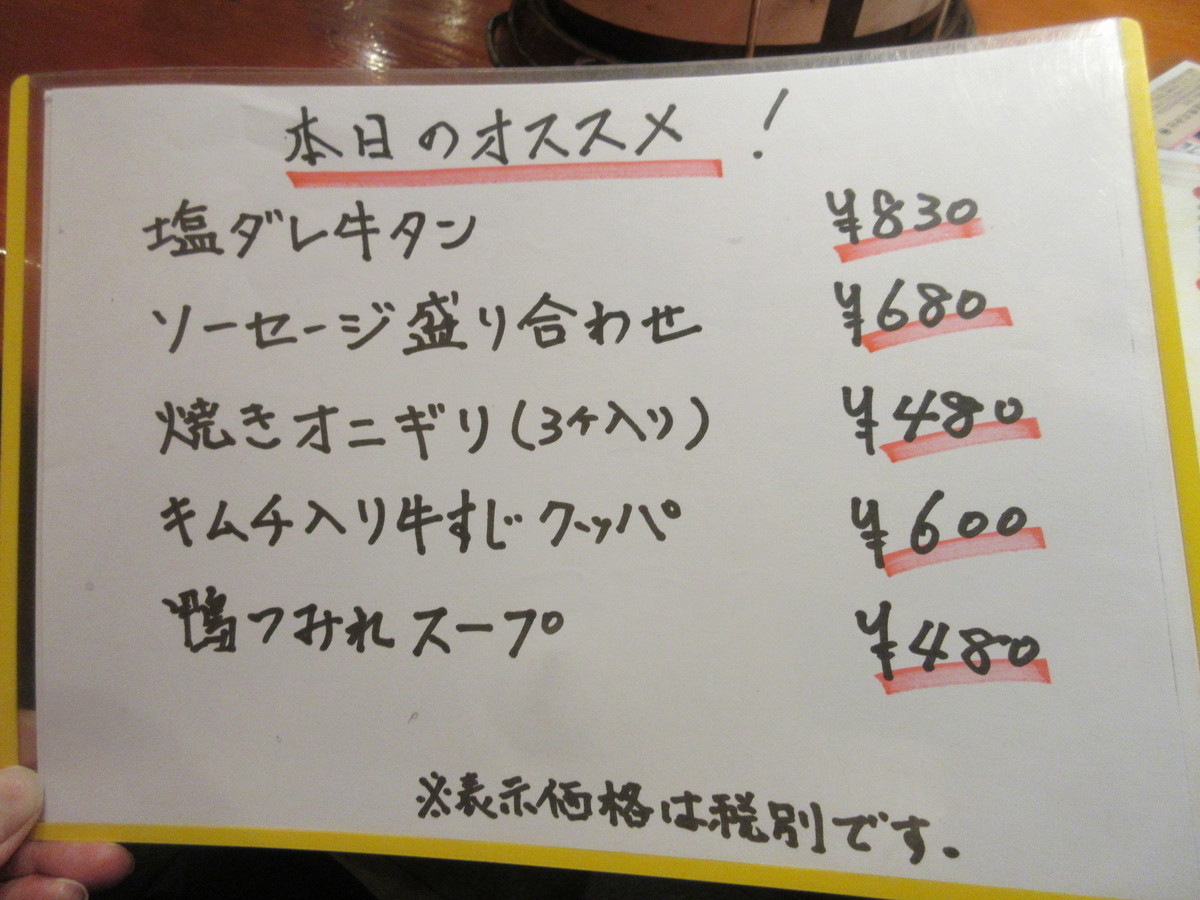 本日のオススメ！
塩ダレ牛タン ¥830
ソーセージ盛り合わせ ¥680
焼きオニギリ(3ケ入り) ¥480
キムチ入り牛すじクッパ ¥600
鴨つみれスープ ¥480
※表示価格は税別です。